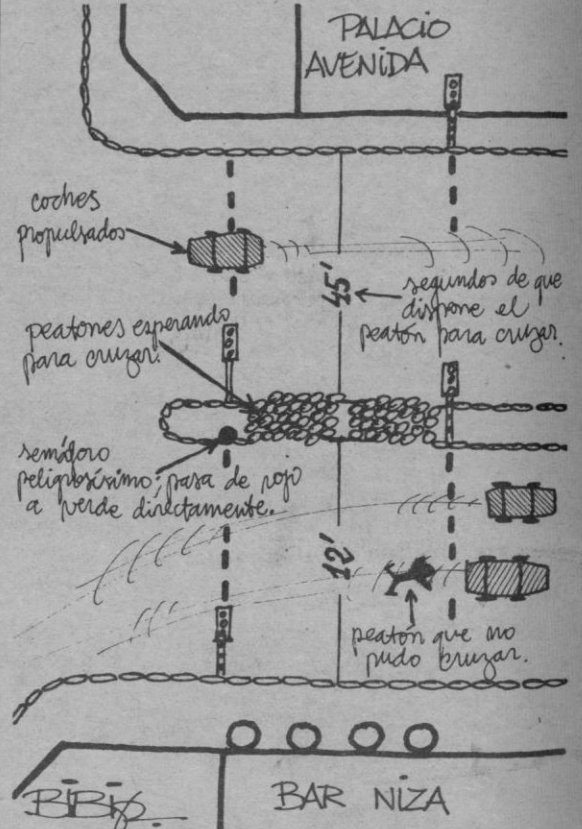 PALACIO
AVENIDA
coches
propulsados
45'
segundos de que
dispone el
peatón para cruzar.
peatones esperando
para cruzar.
semáforo
peligrosísimo; pasa de rojo
a verde directamente.
12'
peatón que no
pudo cruzar.
BAR NIZA